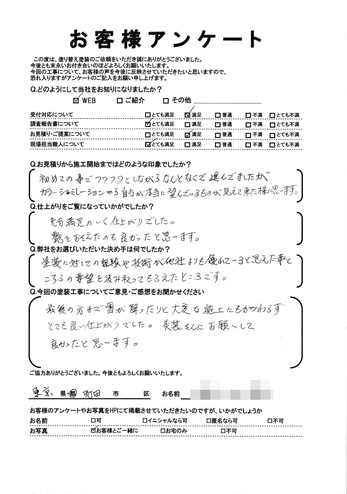 お客様アンケート
この度は、塗り替え塗装のご依頼をいただき誠にありがとうございました。
今後とも末永いお付き合いのほどよろしくお願いいたします。
今回の工事について、お客様の声を今後に反映させていただきたいと思いますので、
恐れ入りますがアンケートのご記入をお願い申し上げます。
Q.どのようにして当社をお知りになりましたか?
☑ WEB □ ご紹介 □ その他
受付対応について □とても満足 ☑満足 □普通 □不満 □とても不満
調査報告書について ☑とても満足 □満足 □普通 □不満 □とても不満
お見積り・ご提案について □とても満足 ☑満足 □普通 □不満 □とても不満
現場担当職人について ☑とても満足 □満足 □普通 □不満 □とても不満
Q.お見積りから施工開始まではどのような印象でしたか?
初めての事でフワフワとしながらなんとなくで進んでましたが
カラーシミレーションやら自分が本当に望んでいるものが見えて来た様に思います。
Q.仕上がりをご覧になっていかがでしたか?
充分満足のいく仕上がりでした。
艶をおさえたのも良かったと思います。
Q.弊社をお選びいただいた決め手は何でしたか?
塗装に対しての経験や技術が他社よりも優れていると思えた事と
こちらの希望を汲み取ってもらえたところです。
Q.今回の塗装工事についてご意見・ご感想をお聞かせください
最後の方で雪が降ったりと大変な施工にもかかわらず
とても良い仕上がりでした。 さんにお願いして
良かったと思います。
ご協力ありがとうございました。今後ともよろしくお願いいたします。
東京 県 都 町田 市 区 お名前
お客様のアンケートやお写真をHPにて掲載させていただきたいのですが、いかがでしょうか
お名前 □可 □イニシャルなら可 □匿名なら可 □不可
お写真 ☑お客様とご一緒に □お宅のみ □不可